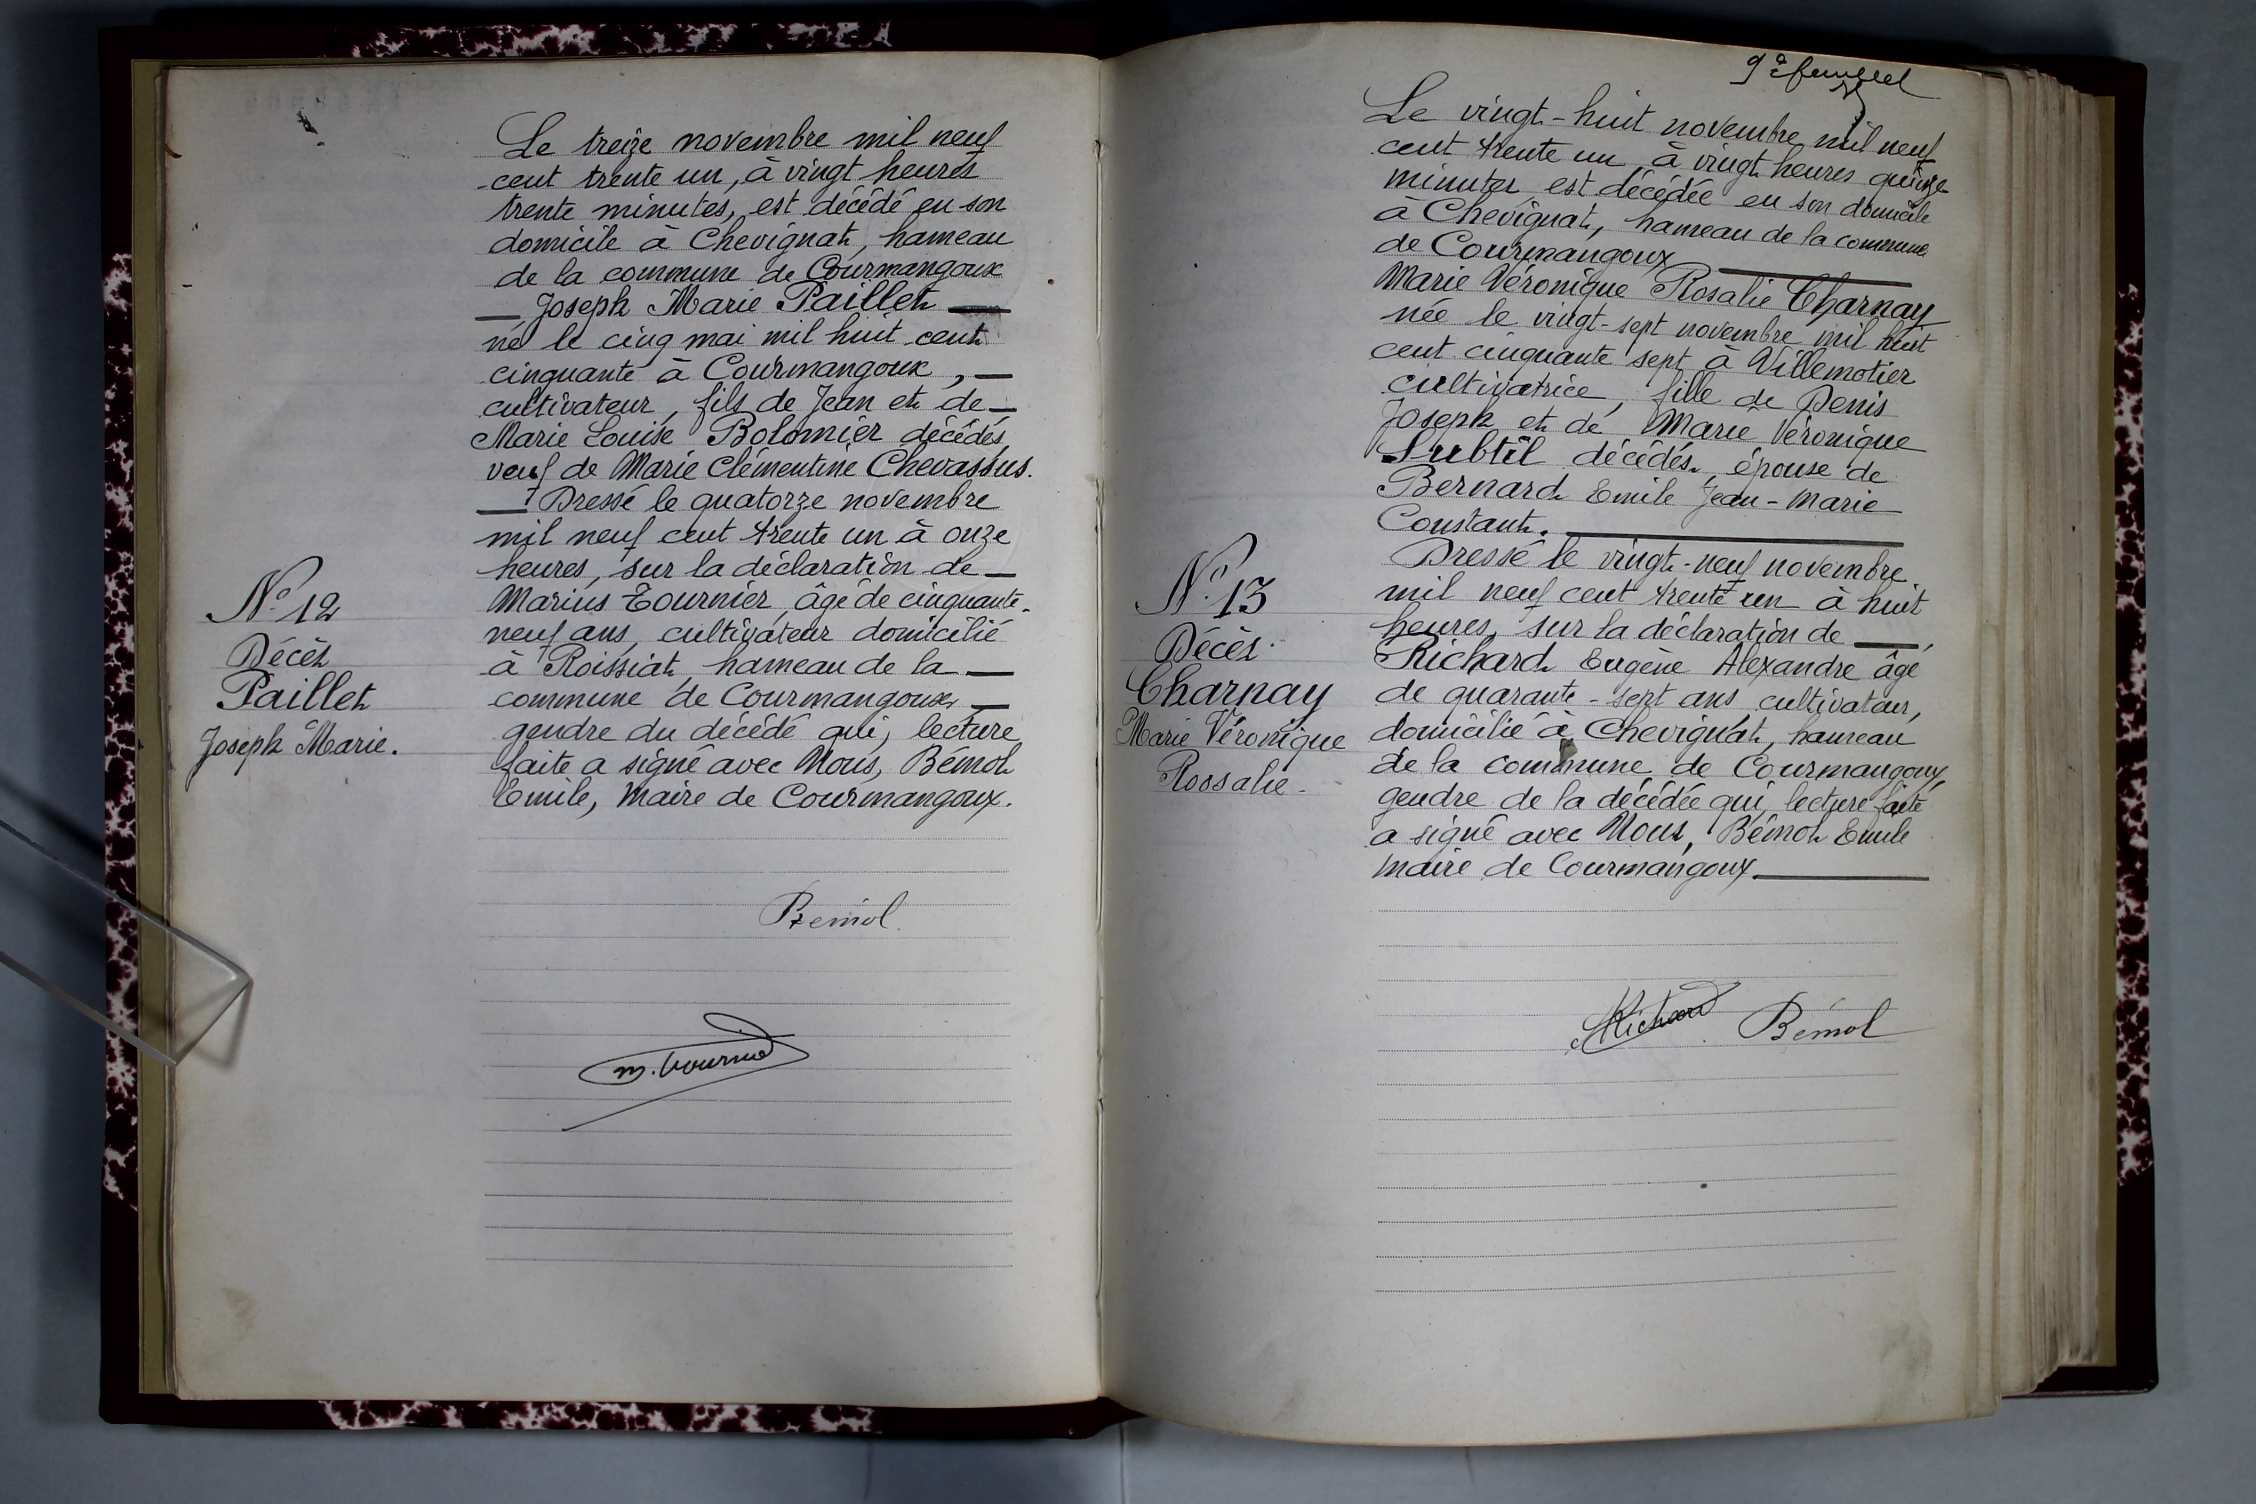 Le treize novembre mil neuf
cent trente un, à vingt heures
trente minutes, est décédé en son
domicile à Chevignat, hameau
de la commune de Courmangoux
Joseph Marie Paillet
né le cinq mai mil huit cent
cinquante à Courmangoux,
cultivateur, fils de Jean et de
Marie Louise Bolomier décédés,
veuf de Marie Clémentine Chevassus.
Dressé le quatorze novembre
mil neuf cent trente un à onze
heures, sur la déclaration de
Marius Tournier, âgé de cinquante-
neuf ans, cultivateur domicilié
à Roissiat, hameau de la
commune de Courmangoux,
gendre du décédé qui, lecture
faite a signé avec Nous, Bémol
Emile, Maire de Courmangoux.
N° 12
Décès
Paillet
Joseph Marie.
Bémol
M. Tournier
Le vingt-huit novembre mil neuf
cent trente un, à vingt heures quinze
minutes est décédée en son domicile
à Chevignat, hameau de la commune
de Courmangoux
Marie Véronique Rosalie Charnay
née le vingt-sept novembre mil huit
cent cinquante sept à Villemotier
cultivatrice, fille de Denis
Joseph et de Marie Véronique
Subtil décédés, épouse de
Bernard Emile Jean-Marie
Constant.
Dressé le vingt-neuf novembre
mil neuf cent trente un à huit
heures, sur la déclaration de
Richard Eugène Alexandre âgé
de quarante-sept ans cultivateur,
domicilié à Chevignat, hameau
de la commune de Courmangoux,
gendre de la décédée qui, lecture faite
a signé avec Nous, Bémol Emile
maire de Courmangoux
N° 13
Décès
Charnay
Marie Véronique
Rosalie
Richard Bémol